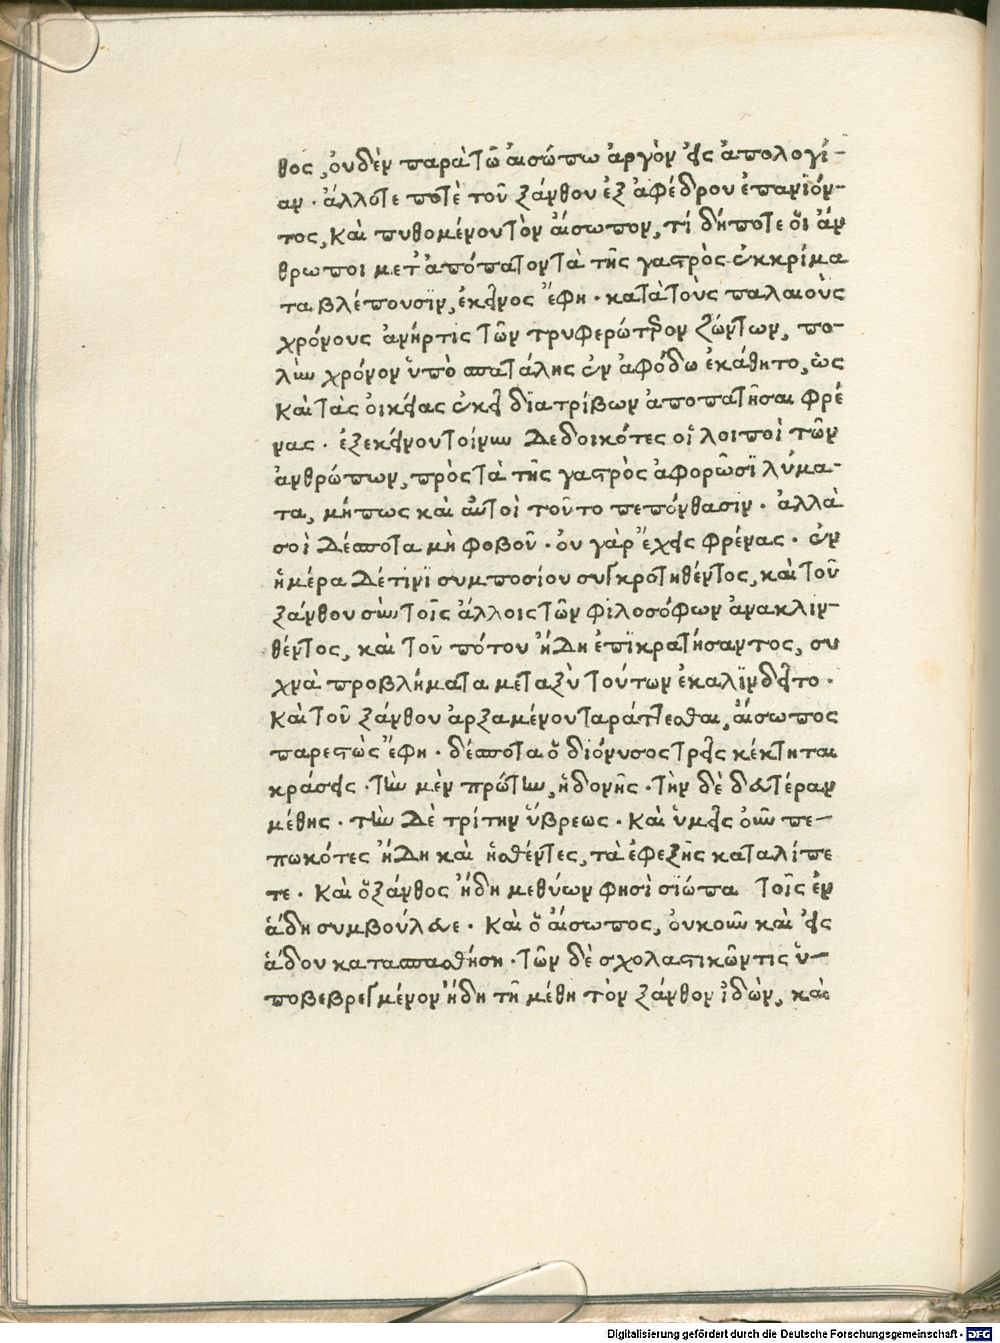 θος, ὀυδὲν παρὰ τῶ ἀισώπω ἀργὸν εἰς ἀπολογί-
αν. ἄλλοτε ποτὲ τοῦ ξάνθου ἐξ ἀφέδρου ἐπανϊόν-
τος, Καὶ πυθομένου τὸν ἀίσωπον, τί δήποτε ὅι ἄν
θρωποι μετ' ἀπόπατον τὰ τῆς γαστρὸς ἐκκρίμα
τα βλέπουσϊν, ἐκεῖνος ἔφη. κατὰ τοὺς παλαιοὺς
χρόνους ἀνήρ τις τῶν τρυφερώτερον ζώντων, πο-
λὺν χρόνον ὑπὸ σπατάλης ἐν ἀφόδω ἐκάθητο, ὡς
Καὶ τὰς ὀικείας ἐκεῖ δϊατρίβων ἀποπατῆσαι φρέ
νας. ἐξ ἐκείνου τοίνυν Δεδοικότες οἱ λοιποὶ τῶν
ἀνθρώπων, πρὸς τὰ τῆς γαστρὸς ἀφορῶσϊ λύμα-
τα, μήπως καὶ ἀυτοὶ τοῦτο πεπόνθασιν. ἀλλὰ
σοὶ Δέσποτα μὴ φοβοῦ. ὀυ γὰρ ἔχεις φρένας. ἐν
ἡμέρα Δέ τινϊ συμποσίου συγκροτηθέντος, καὶ τοῦ
ξάνθου σὺν τοῖς ἄλλοις τῶν φιλοσόφων ἀνακλιν-
θέντος, καὶ τοῦ πότου ἤΔη ἐπϊκρατήσαντος, συ
χνὰ προβλήματα μεταξὺ τούτων ἐκαλϊνδεῖτο.
Καὶ τοῦ ξάνθου ἀρξαμένου ταράττεσθαι, ἀίσωπος
παρεστὼς ἔφη. δέσποτα ὁ διόνυσος τρεῖς κέκτηται
κράσεις. τὴν μὲν πρώτην, ἡδονῆς. τὴν δὲ δευτέραν
μέθης. τὴν Δὲ τρίτην ὕβρεως. Καὶ ὑμεῖς ὀῦν πε-
πωκότες ἤΔη καὶ ἡσθέντες, τὰ ἐφεξῆς καταλίπε
τε. Καὶ ὁ ξάνθος ἤδη μεθύων φησὶ σϊώπα τοῖς ἐν
ἅδη συμβούλευε. Καὶ ὁ ἀίσωπος, ὀυκοῦν καὶ εἰς
ἅδου κατασπασθήση. τῶν δὲ σχολαστικῶν τις ὑ-
ποβεβρεγμένον ἤδη τῆ μέθη τὸν ξάνθον ἰδὼν, καὶ
Digitalisierung gefördert durch die Deutsche Forschungsgemeinschaft - DFG